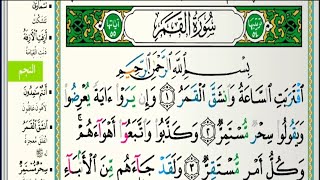 سُورَةُ القَمَرِ
بِسْمِ اللَّهِ الرَّحْمَٰنِ الرَّحِيمِ
ٱقْتَرَبَتِ ٱلسَّاعَةُ وَٱنشَقَّ ٱلْقَمَرُ ١ وَإِن يَرَوْا۟ ءَايَةً يُعْرِضُوا۟
وَيَقُولُوا۟ سِحْرٌ مُّسْتَمِرٌّ ٢ وَكَذَّبُوا۟ وَٱتَّبَعُوٓا۟ أَهْوَآءَهُمْ ۚ
وَكُلُّ أَمْرٍ مُّسْتَقِرٌّ ٣ وَلَقَدْ جَآءَهُم مِّنَ ٱلْأَنۢبَآءِ
النجم